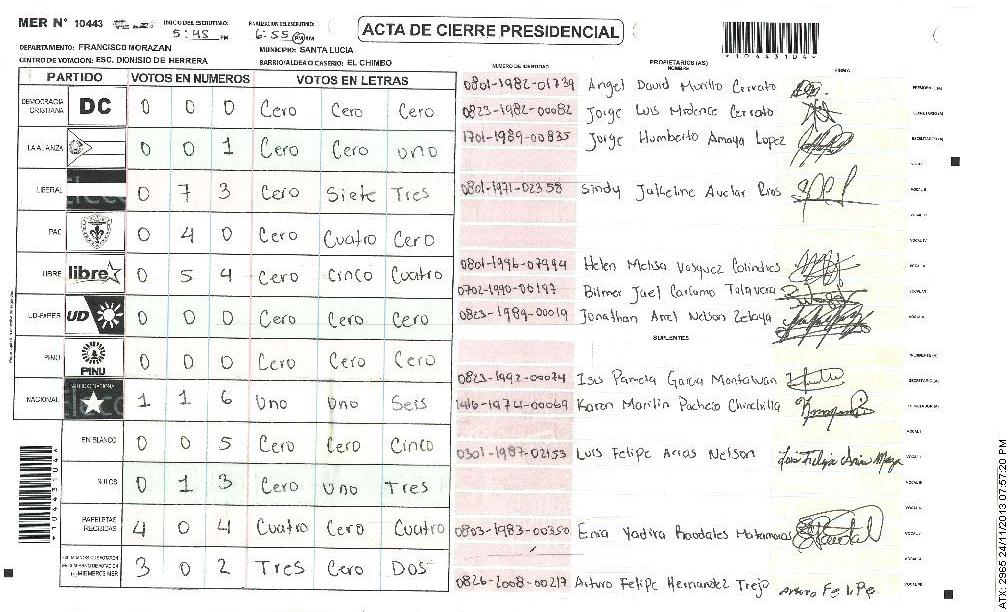 MER N° 10443 INICIO DEL ESCRUTINIO: 5:45 PM FINALIZACION DEL ESCRUTINIO: 6:55 PM ACTA DE CIERRE PRESIDENCIAL
DEPARTAMENTO: FRANCISCO MORAZAN MUNICIPIO: SANTA LUCIA
CENTRO DE VOTACION: ESC. DIONISIO DE HERRERA BARRIO/ALDEA O CASERIO: EL CHIMBO
*10443104*
PARTIDO VOTOS EN NUMEROS VOTOS EN LETRAS
NUMERO DE IDENTIDAD PROPIETARIOS (AS) NOMBRE FIRMA
DEMOCRACIA CRISTIANA DC 0 0 0 Cero Cero Cero
LA ALIANZA 0 0 1 Cero Cero uno
LIBERAL 0 7 3 Cero Siete Tres
PAC 0 4 0 Cero Cuatro Cero
LIBRE libre 0 5 4 Cero Cinco Cuatro
UD-FAPER UD 0 0 0 Cero Cero Cero
PINU PINU 0 0 0 Cero Cero Cero
NACIONAL 1 1 6 Uno Uno Seis
EN BLANCO 0 0 5 Cero Cero Cinco
NULOS 0 1 3 Cero Uno Tres
PAPELETAS RECIBIDAS 4 0 4 Cuatro Cero Cuatro
3 0 2 Tres Cero Dos
0801-1982-01739 Angel David Murillo Cerrato
0823-1982-00082 Jorge Luis Cerrato
1701-1989-00835 Jorge Humberto Amaya Lopez
0801-1971-02358 Sindy Avelar Rios
0801-1996-07994 Helen Melisa Vasquez Colindres
0702-1990-00197 Bilmer Jael Carcamo Talavera
0823-1989-00019 Jonathan Ariel Nelson Zelaya
SUPLENTES
0823-1992-00074 Isis Pamela Garcia Montalvan
1416-1974-00069 Karen Marilin Pacheco Chinchilla
0301-1987-02153 Luis Felipe Arias Nelson
0803-1983-00350 Enia Yadira Raudales Matamoros
0826-2008-00217 Arturo Felipe Hernandez Trejo Arturo Felipe
*10443104*
ATX: 2965 24/11/2013 07:57:20 PM